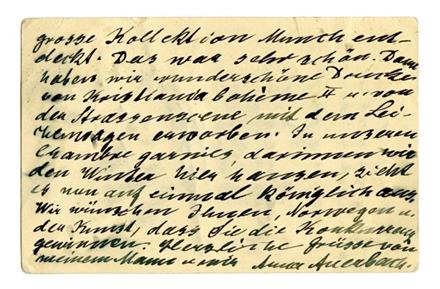 grosse Kollektion Munch ent-
deckt. Das war sehr schön. Dann
haben wir wunderschöne Drucke
von Kristiania bohème II u. von
der Strassenscene, mit dem Lei-
chenwagen erworben. In unseren
Chambre garnies, darinnen wir
den Winter hier hausen, sieht
es nun auf einmal königlich aus.
Wir wünschen Ihnen, Norwegen u.
der Kunst, dass Sie die Konkurrenz
gewinnen. Herzliche Grüsse von
meinem Mann u. mir Anna Auerbach.